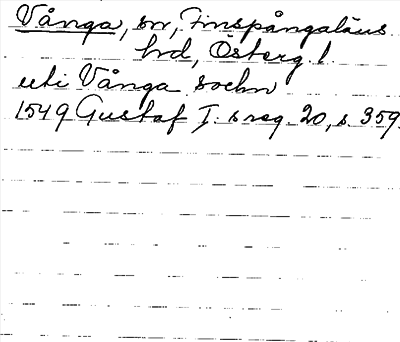 Vånga, sn, Finspångaläns
hd, Österg. l.
uti Vånga sochn
1549 Gustaf I. s reg. 20, s. 359.